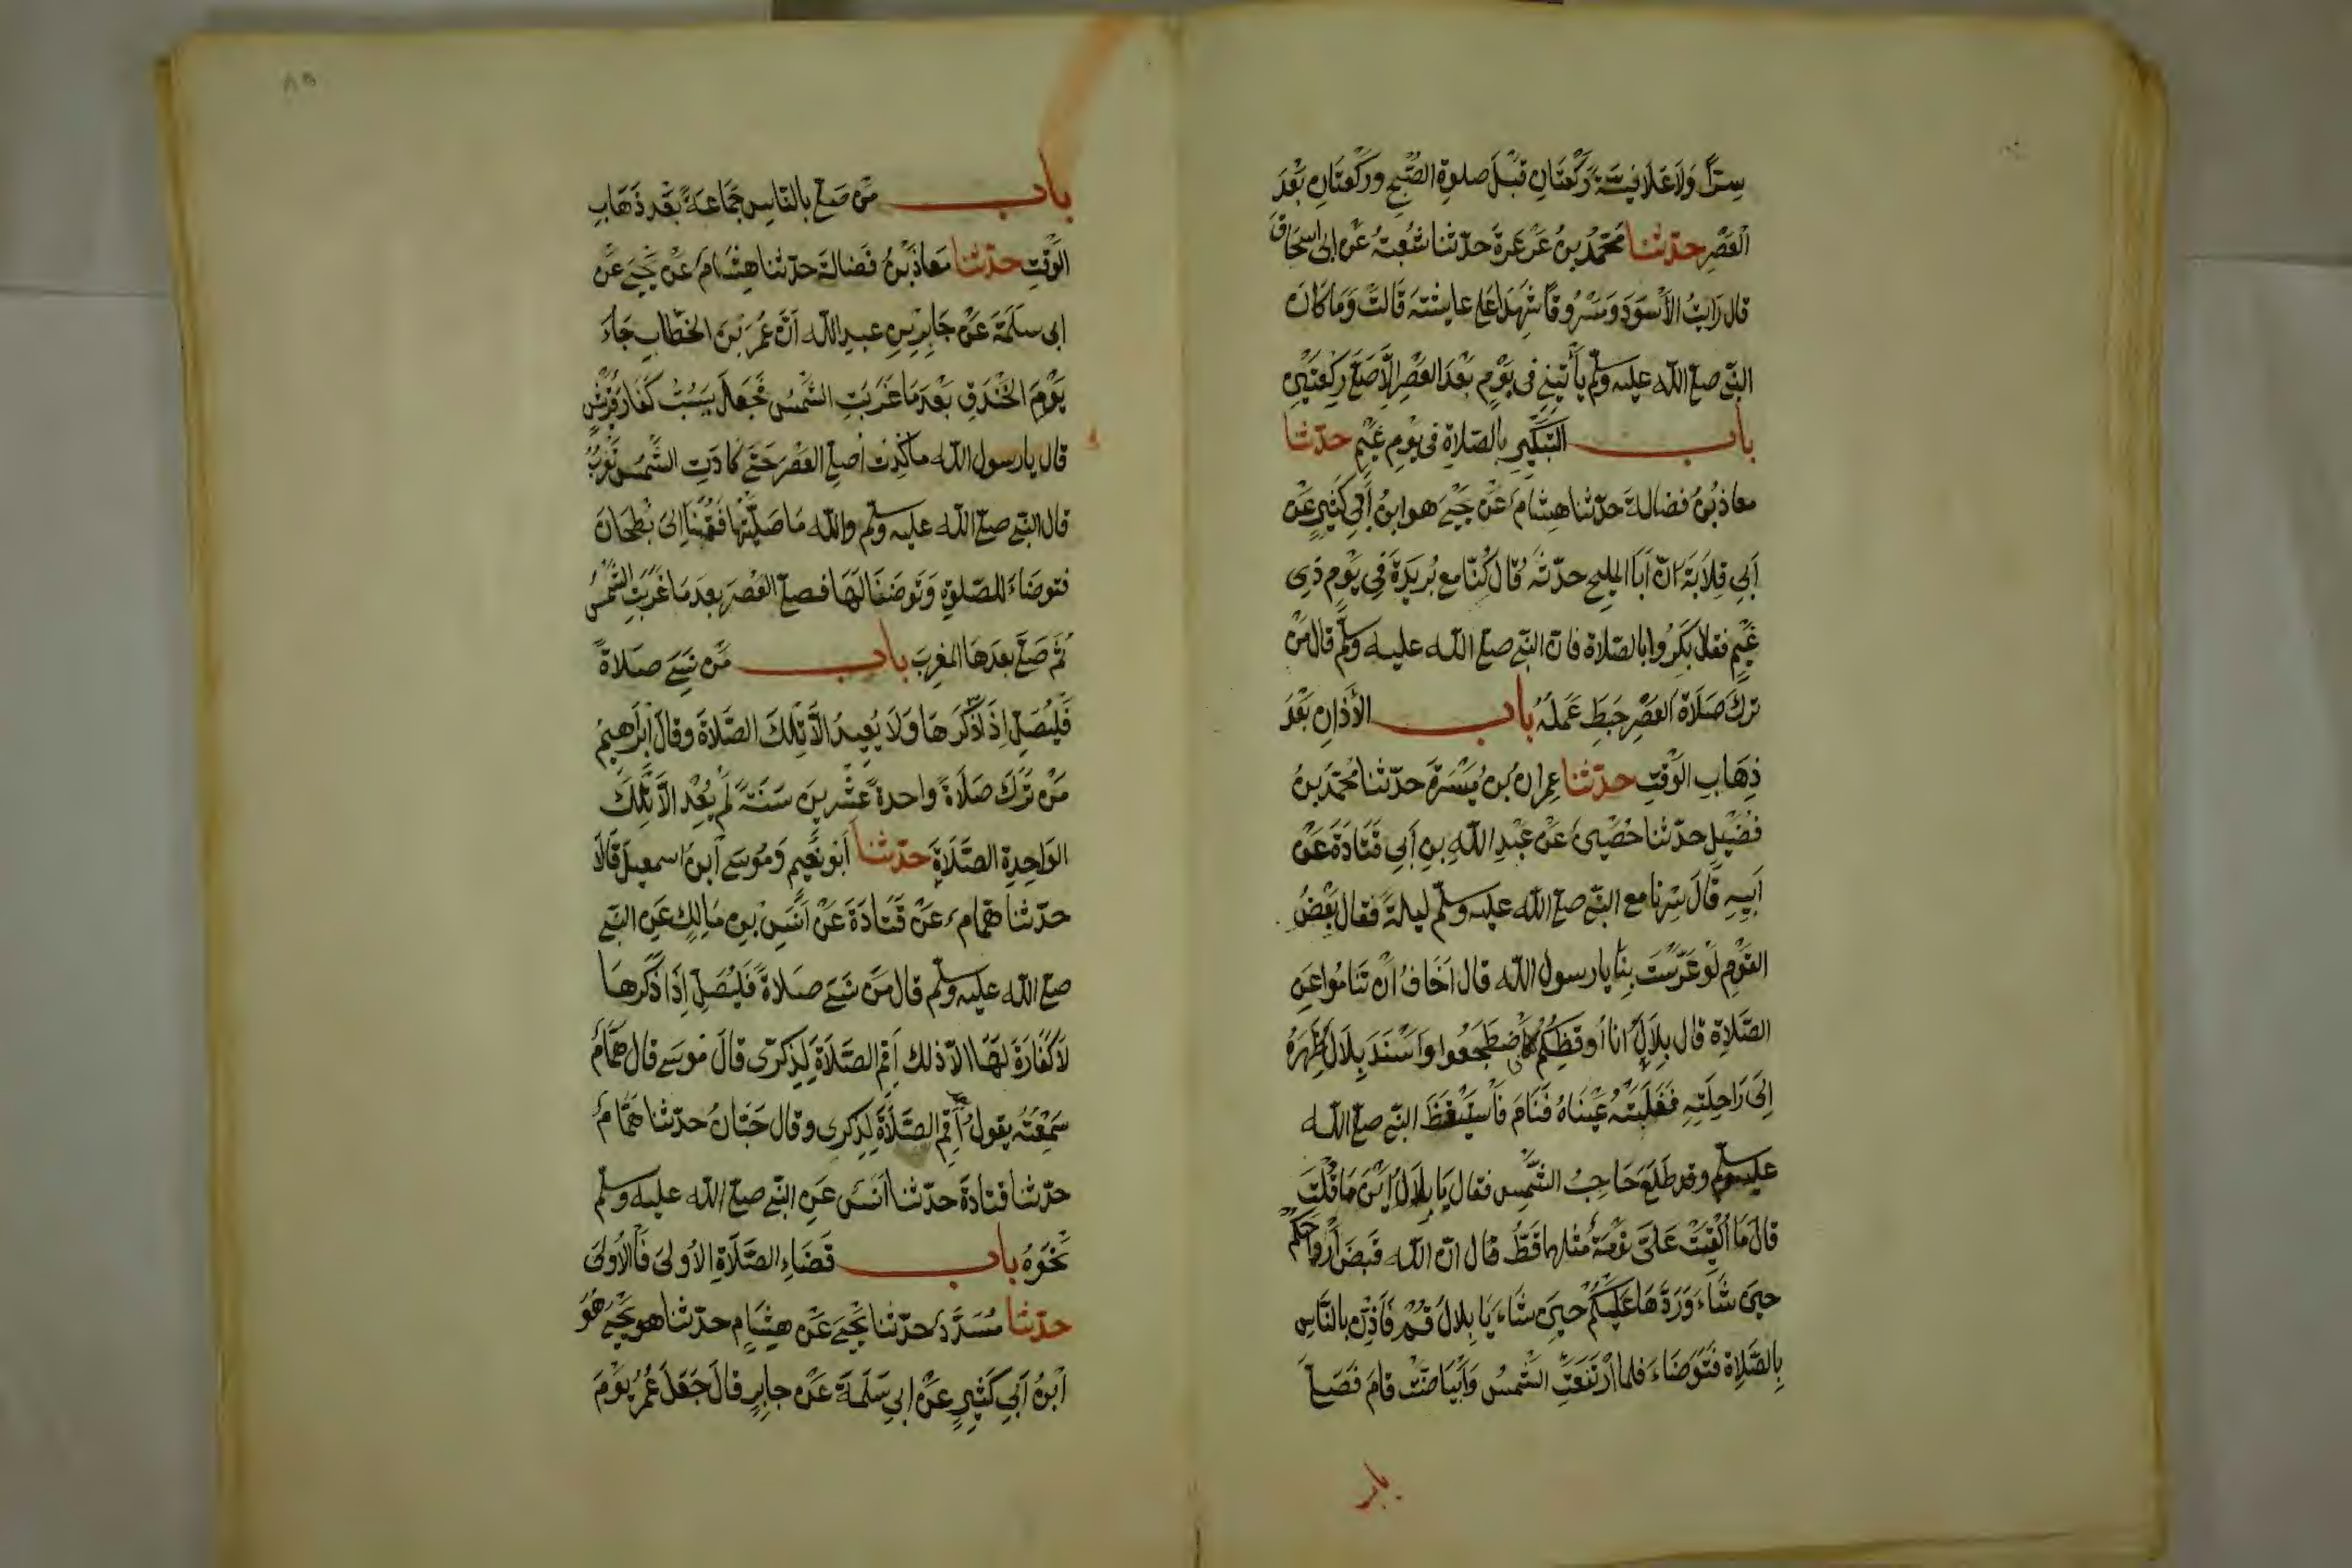 سِرًّا وَلَا عَلَانِيَةً رَكْعَتَانِ قَبْلَ صلوة الصُّبْحِ وركْعَتَانِ بَعْدَ
الْعَصْرِ حدّثنا مُحَمَّدُ بنُ عَرْعَرةَ حدّثنا شُعْبةُ عَنْ ابى اسحَاقَ
قال رَايتُ الأَسْوَدَ وَمَسْرُوقًا شَهِدَا على عايشةَ قَالتْ وَمَا كَانَ
النّبى صلى اللّه عليه وسلّم يَأْتِينِى فى يَوْمٍ بَعْدَ العَصْرِ الَّا صَلَّى رَكْعَتَيْنِ
باب التَّبْكِيرِ بالصّلاةِ فى يَوْمِ غَيْمٍ حدّثنا
معاذ بْنُ فضالةَ حدّثنا هِشامٌ عَنْ يَحْيَى هو ابنُ أَبِي كَثِيرٍ عَنْ
أَبِي قِلَابَةَ انّ أَبَا المليح حدّثهُ قال كُنّا مع بُرَيْدَةَ فِي يَوْمٍ ذِى
غَيْمٍ فقال بَكِّرُوا بالصّلاة فانّ النّبى صلى اللّه عليه وسلّم قال مَنْ
تركَ صَلَاةَ العَصْرِ حَبِطَ عَمَلُهُ باب الأَذانِ بَعْدَ
ذِهَابِ الوَقْتِ حدّثنا عِمرانُ بنُ مَيْسَرةَ حدّثنا مُحَمَّدُ بنُ
فُضَيْلٍ حدّثنا حُصَيْنٌ عَنْ عَبْدِ اللّهِ بنِ أَبِي قَتَادَةَ عَنْ
أَبِيهِ قَالَ سِرْنَا مع النّبى صلى اللّه عليه وسلّم ليلةً فقال بَعْضُ
القَوْمِ لَوْ عَرَّسْتَ بِنَا يا رسول اللّه قال اَخَافُ أَنْ تَنَامُوا عَنِ
الصَّلاةِ قال بِلَالٌ انا أُوقِظُكُمْ فَاضْطَجَعُوا وَاَسْنَدَ بِلَالٌ ظَهْرَهُ
اِلَى رَاحِلَتِهِ فَغَلَبَتْهُ عَيْنَاهُ فَنَامَ فَاسْتَيْقَظَ النّبى صلى اللّه
عليه وسلّم وقد طَلَعَ حَاجِبُ الشَّمْسِ فقال يَا بِلَالُ أَيْنَ مَا قُلْتَ
قالَ مَا أُلْقِيَتْ عَلَىَّ نَوْمةٌ مثلها قَطُّ قال انّ اللّه قَبَضَ أَرْوَاحَكُمْ
حينَ شَاءَ وَرَدَّهَا عَلَيْكُمْ حينَ شاءَ يَا بِلالُ قُمْ فَأَذِّنْ بالنَّاسِ
بِالصَّلاةِ فَتَوَضّاءَ فلما ارْتَفَعَتِ الشّمسُ وَابْيَاضَّتْ قامَ فَصَلَّى
باب
٨٥
باب مَنْ صلى بالنّاسِ جَمَاعَةً بَعْد ذَهَابِ
الْوَقْتِ حدّثنا معاذ بْنُ فَضالةَ حدّثنا هِشامٌ عَنْ يَحْيَى عَنْ
ابى سَلَمَةَ عَنْ جَابِرِ بنِ عبدِ اللّه أَنَّ عُمَرَ بْنَ الخطّابِ جَاءَ
يَوْمَ الخَنْدَقِ بَعْدَ مَا غَرَبَتِ الشَّمْسُ فَجَعَلَ يَسُبُّ كُفّارَ قُرَيْشٍ
قال يا رسول اللّه ما كِدْتُ أُصلى العَصْرَ حَتَّى كادَتِ الشَّمْسُ تَغْرُبُ
قال النّبى صلى اللّه عليه وسلّم واللّه مَا صَلَّيْتُهَا فَقُمْنَا اِلَى بُطْحَانَ
فتوضّاءَ للصّلوةِ وَتَوضّانَا لَهَا فصلّى العَصْرَ بعدَ مَا غَرَبَتِ الشّمْسُ
ثُمّ صَلَّى بعدَهَا المَغْرِبَ باب مَنْ نَسِىَ صَلاةً
فَلْيُصَلِّ اِذَا ذَكَرَهَا وَلَا يُعِيدُ الَّا تِلْكَ الصَّلاةَ وقالَ اِبْرَاهِيمُ
مَنْ تَرَكَ صَلَاةً واحدةً عشْرِينَ سَنَةً لَمْ يُعِدْ الَّا تِلْكَ
الوَاحِدةَ الصَّلَاةَ حدّثنا أَبو نُعَيْمٍ وَمُوسَى ابنُ اسمعيلَ قَالَا
حدّثنا همّامٌ عَنْ قَتَادَةَ عَنْ أَنَسِ بنِ مَالِكٍ عَنِ النّبى
صلى اللّه عليه وسلّم قال مَنْ نَسِىَ صَلاةً فَلْيُصَلِّ اِذَا ذَكَرَهَا
لَا كَفَّارَةَ لَهَا الّا ذلك أَقِمِ الصَّلَاةَ لِذِكْرَى قالَ موسى قال هَمَّامٌ
سَمِعْتُهُ يقولُ أَقِمِ الصَّلَاةَ لِذِكرى وقال حَبّانُ حدّثنا همَّامٌ
حدّثنا قتادةَ حدّثنا أَنَسٌ عَنِ النّبى صلى اللّه عليه وسلّم
نَحْوَهُ باب قَضَاءِ الصَّلَاةِ الأُولَى فَالأُولَى
حدّثنا مُسَدَّدٌ حدّثنا يَحْيَى عَنْ هِشَامٍ حدّثنا هو يَحْيَى هُوَ
ابنُ أَبِي كَثِيرٍ عَنْ ابِي سَلَمَةَ عَنْ جابِرٍ قالَ جَعَلَ عُمَرُ يَوْمَ